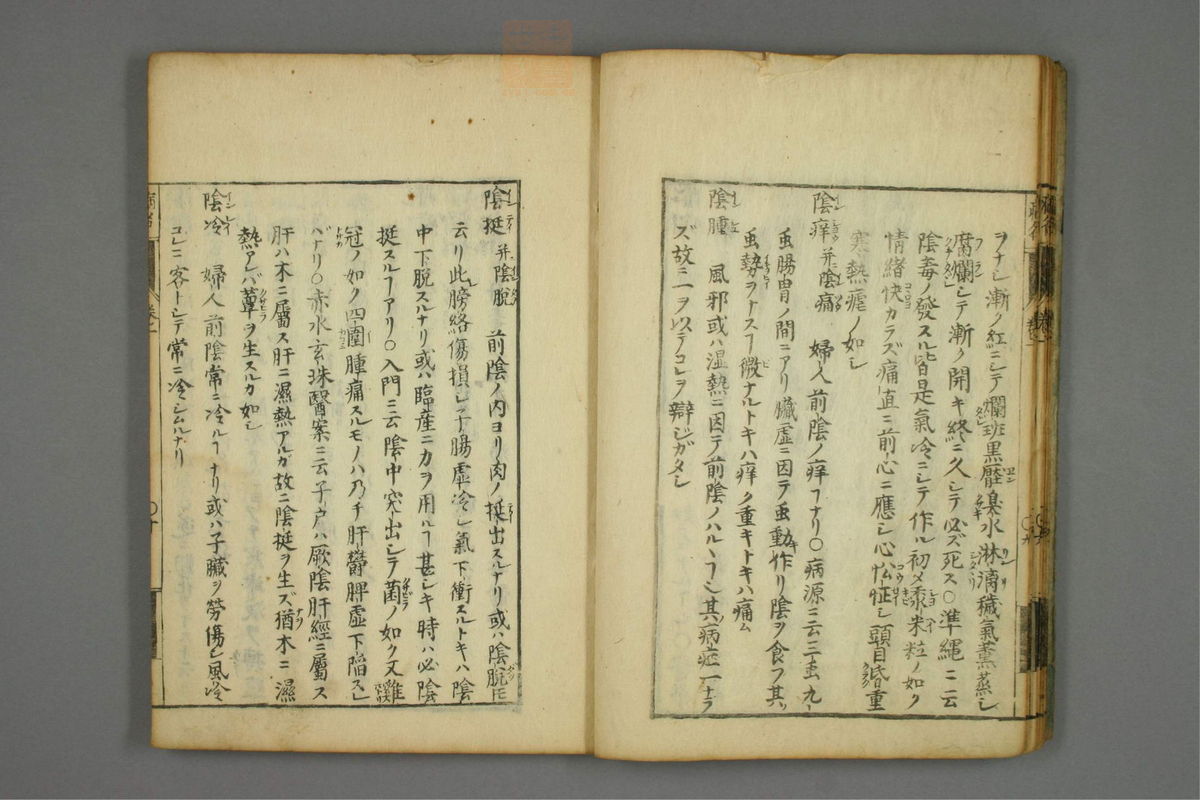 ヲナシ漸ク紅ニシテ爛斑黒靨臭水淋滴穢氣薫蒸シ
腐爛シテ漸ク開キ終ニ久シテ必ズ死ス〇準繩ニ云
陰毒ノ發スル皆是氣冷ニシテ作ル初メ黍米粒ノ如ク
情緒快カラズ痛直ニ前心ニ應シ心忪怔シ頭目昏重
寒熱瘧ノ如シ
陰痒 并ニ陰痛 婦人前陰ノ痒フナリ〇病源ニ云三䖝九
䖝腸胃ノ間ニアリ臟虚ニ因テ䖝動作リ陰ヲ食フ其
䖝勢ヲナスヿ微ナルトキハ痒ク重キトキハ痛ム
陰腫 風邪或ハ湿熱ニ因テ前陰ノハルヽヿシ其病症一ナラ
ズ故ニ一ヲ以テコレヲ辯ジガタシ
陰挺 并陰脱 前陰ノ内ヨリ肉ノ挺出スルナリ或ハ陰脱𪜈
云リ此膀絡傷損シ子腸虚冷シ氣下衝スルトキハ陰
中下脱スルナリ或ハ臨産ニ力ヲ用ルヿ甚シキ時ハ必陰
挺スルヿアリ〇入門ニ云陰中突出シテ菌ノ如ク又雞
冠ノ如ク四圍腫痛スルモノハ乃チ肝鬱脾虚下陥スレ
バナリ〇赤水玄珠醫案ニ云子戸ハ厥陰肝經ニ屬ス
肝ハ木ニ屬ス肝ニ濕熱アルガ故ニ陰挺ヲ生ズ猶木ニ濕
熱アレバ蕈ヲ生スルカ如シ
陰冷 婦人前陰常ニ冷ルヿナリ或ハ子臟ヲ勞傷シ風冷
コレニ客トシテ常ニ冷シムルナリ